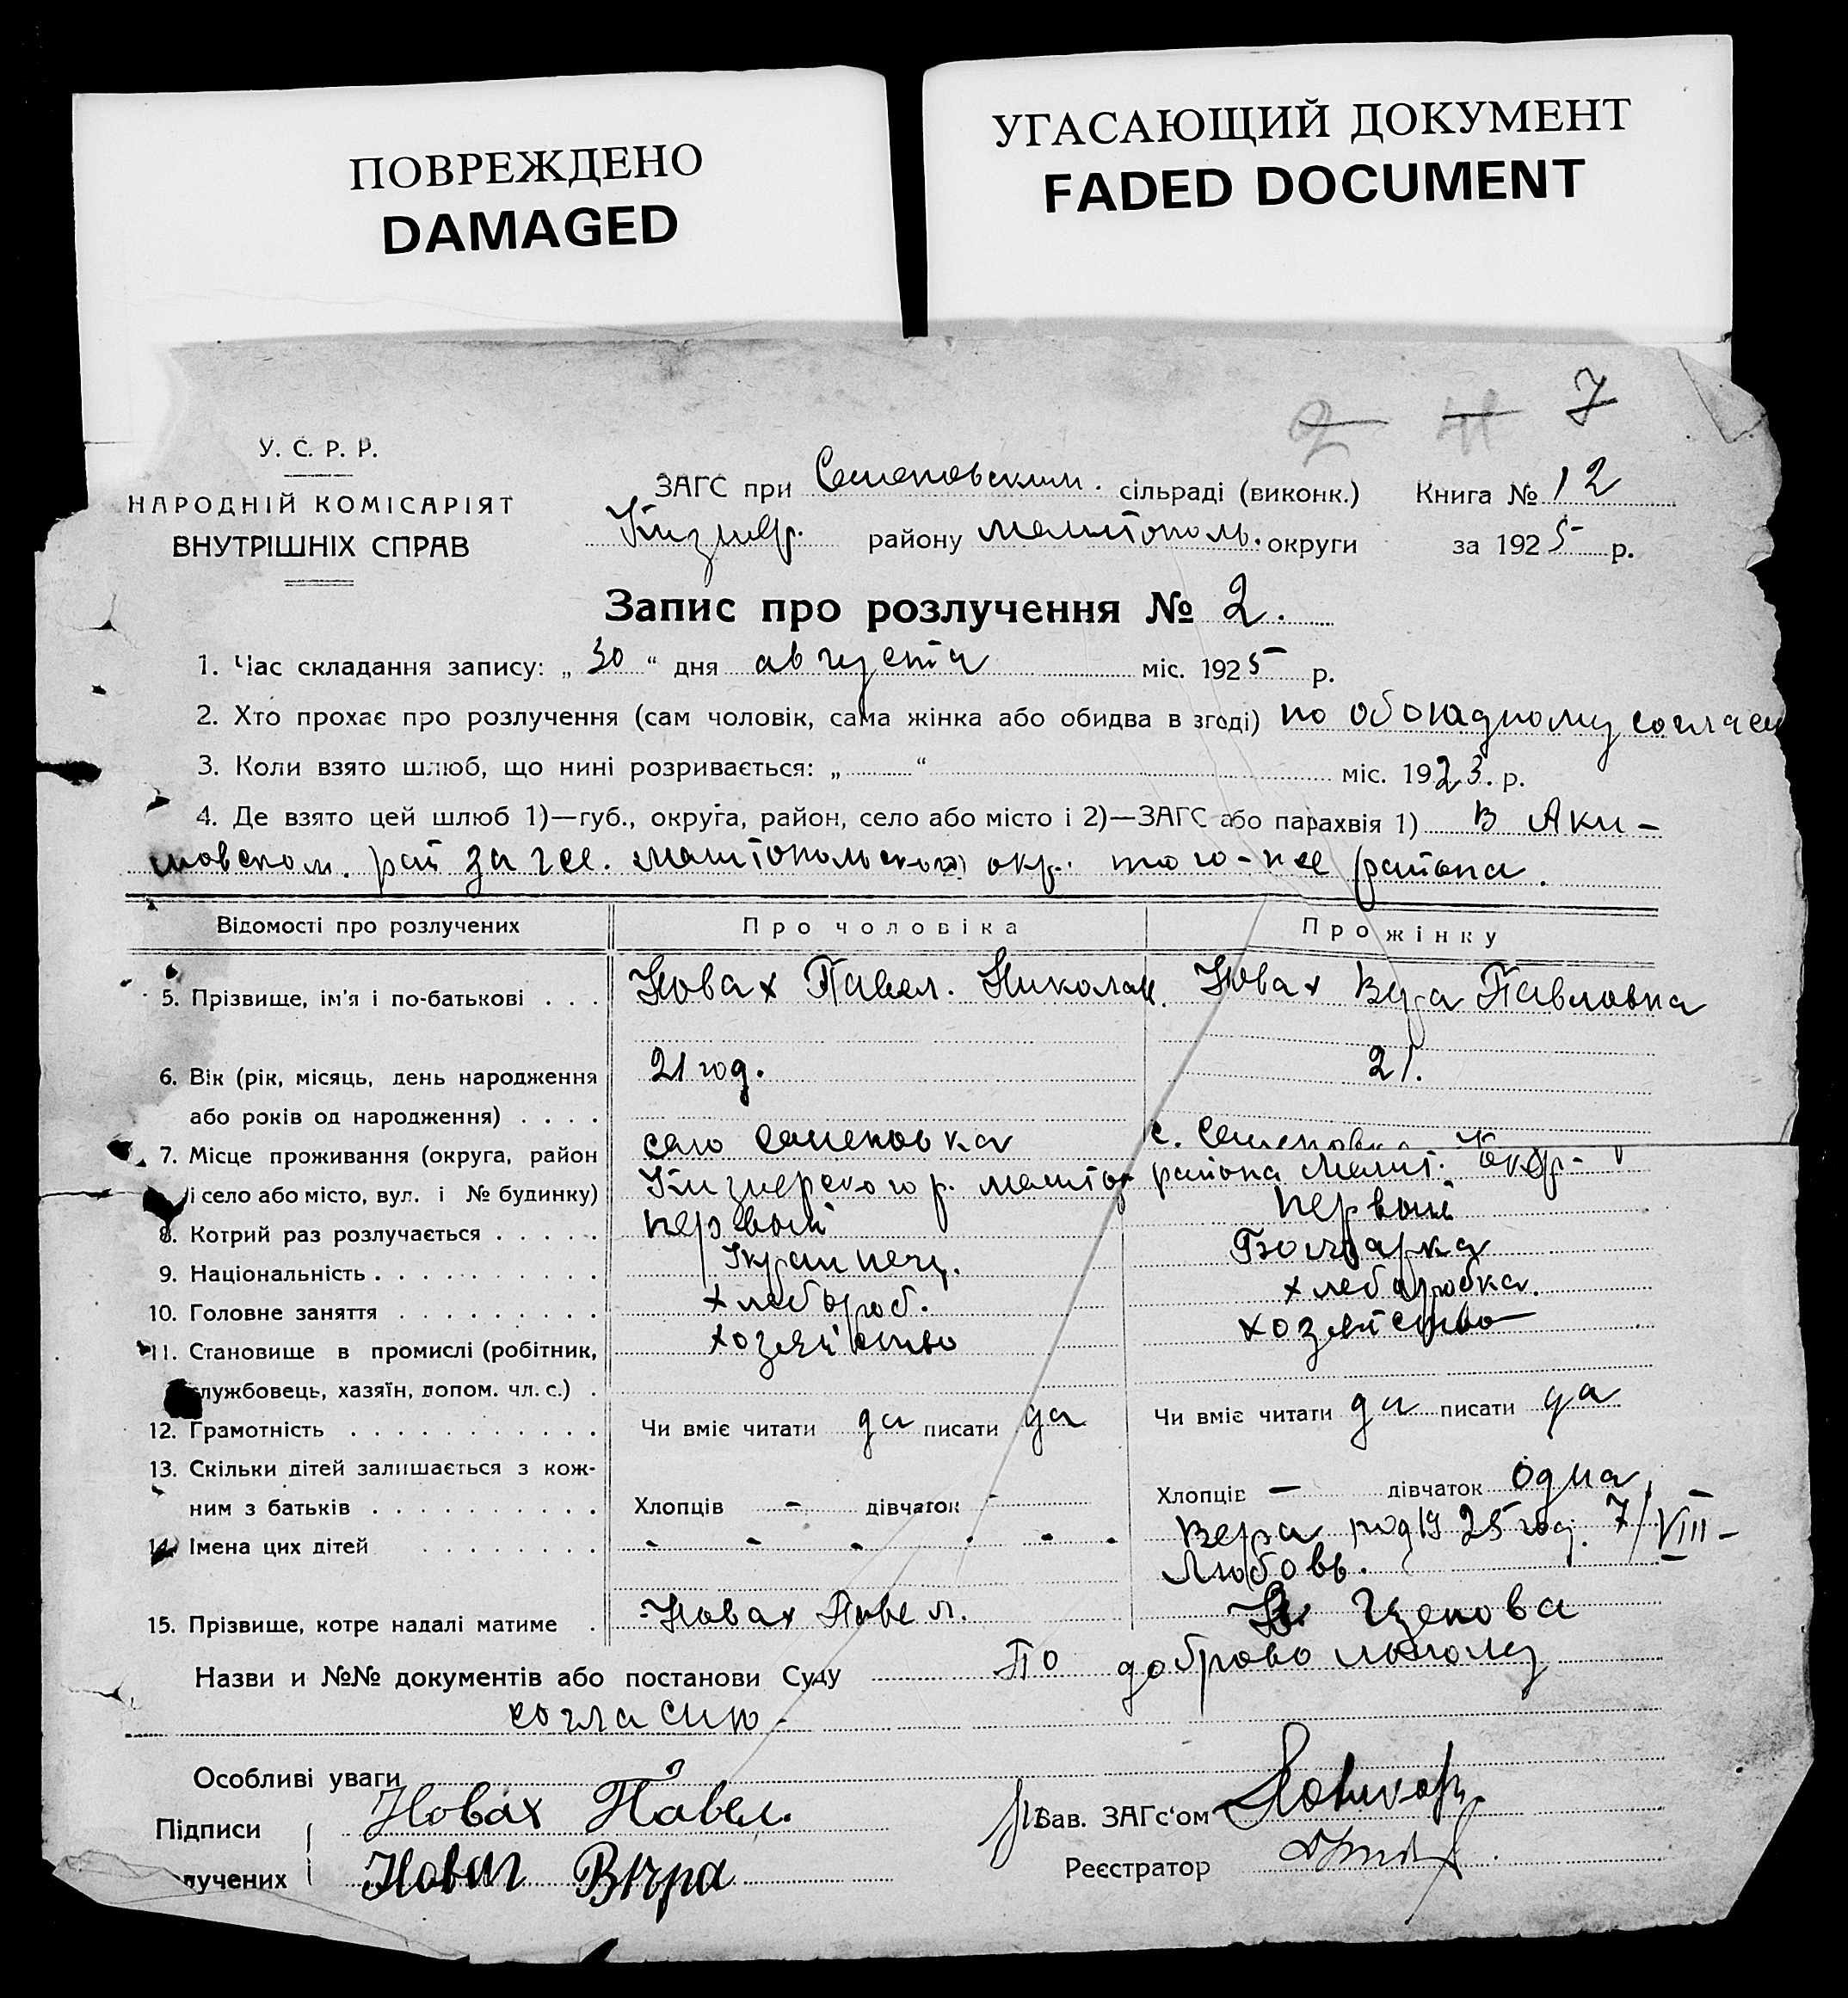 ПОВРЕЖДЕНО
DAMAGED
УГАСАЮЩИЙ ДОКУМЕНТ
FADED DOCUMENT
2 7
У. С. Р. Р.
НАРОДНІЙ КОМІСАРІЯТ
ВНУТРІШНІХ СПРАВ
ЗАГС при Семеновским. сільраді (виконк.) Книга № 12
Кизияр. району мелитополь. округи за 1925 р.
Запис про розлучення № 2.
1. Час складання запису: „30“ дня августа міс. 1925 р.
2. Хто прохає про розлучення (сам чоловік, сама жінка або обидва в згоді) по обоюдному согласи
3. Коли взято шлюб, що нині розривається: „ “ міс. 1923. р.
4. Де взято цей шлюб 1)—губ., округа, район, село або місто і 2)—ЗАГС або парахвія 1) в Аки-
мовском. рай загсе. мелитопольского окр. того-же района.
Відомості про розлучених Про чоловіка Про жінку
5. Прізвище, ім'я і по-батькові . . . Новах Павел. Николаи. Новах Вера Павловна
6. Вік (рік, місяць, день народження 21 год. 21.
або років од народження) . . . .
7. Місце проживання (округа, район село Семеновка с. Семеновка
і село або місто, вул. і № будинку) Кизиерского р. мелитоп района Мелит. Окр.
8. Котрий раз розлучається . . . . . первый первый
9. Національність . . . . . . . . . . Украинец. Болгарка
10. Головне заняття . . . . . . . . . хлебороб. хлебаробка.
11. Становище в промислі (робітник, хозяйство хозяйство
службовець, хазяїн, допом. чл. с.) .
12. Грамотність . . . . . . . . . . . Чи вміє читати да писати да Чи вміє читати да писати да
13. Скільки дітей залишається з кож-
ним з батьків . . . . . . . . . . Хлопців - дівчаток - Хлопців — дівчаток одна
14. Імена цих дітей . . . . . . . . Вера род 1925 год. 7/VIII-
Любовь.
15. Прізвище, котре надалі матиме . Новах Павел. Гценова
Назви и №№ документів або постанови Суду По доброво льному
согласию
Особливі уваги
Підписи Новах Павел. Зав. ЗАГс‘ом
лучених Новах Вѣра Реєстратор